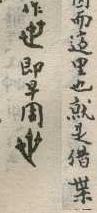 因而這里也就是借葉
作也即早周也